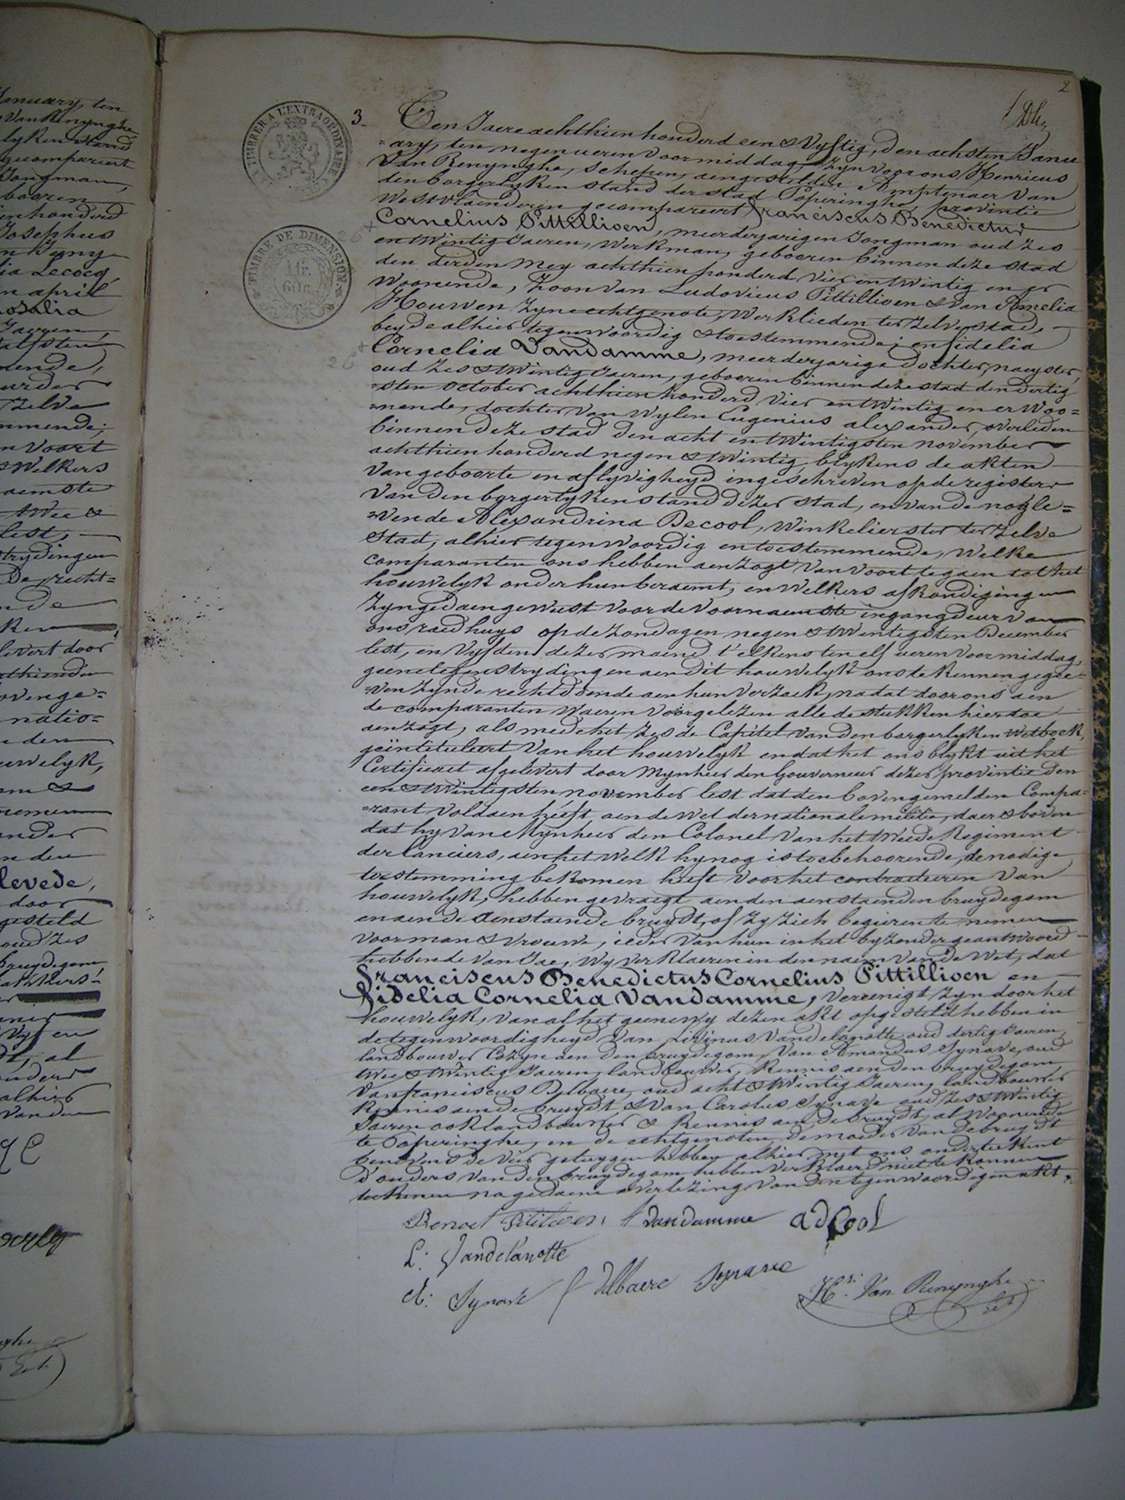 January, ten
Van Renynghe
lyken stand
gecompareert
Jongman,
boren
enhonderd
Josephus
lia Lecocq
n april
osalia
Jaeren,
dende,
Zelve
mmende;
n Voort
Welkers
aemste
Wee &
lest,
trydingen
De recht=
nde
levert door
ovenge=
natio=
uwelyk,
nder
levede,
door
gesteld
oud Zes
bruydegom
Vyf en
alhier
Van den
TIMBRER A L'EXTRAORDINAIRE
TIMBRE DE DIMENSION
1 fr.
60 c.
2
3.
Een Jaere achthien honderd een & Vyftig, den achsten Janu
=ary, ten negen ueren voormiddag, Zyn voor ons Henricus
Van Renynghe, Schepen, aengestelden Amptenaer van
den borgerlyken stand der stad Poperinghe, provintie
Westvlaenderen gecompareert Franciscus Benedictus
Cornelius Pittillioen, meerderjarigen Jongman oud Zes
en twintig Jaeren, Werkman, geboeren binnen deze stad
den derden Mey achthien honderd Vier en twintig en er
Woonende, Zoon van Ludovicus Pittillioen & van Amelia
Houwen Zyne echtgenote, Werklieden ter Zelve stad,
beyde alhier tegenwoordig & toestemmende; en fidelia
Cornelia Vandamme, meerderjarige dochter, nayster,
oud Zes & twintig Jaeren, geboeren binnen deze stad den dertig
=sten October achthien honderd Vier en twintig en er Woo=
=nende, dochter van Wylen Eugenius alexander, overleden
binnen deze stad den acht en twintigsten november
achthien honderd negen & twintig, blykens de akten
Van geboorte en aflyvigheyd ingeschreven op de registers
Van den borgerlyken stand dezer stad, en van de nogle=
=vende Alexandrina Decool, Winkelierster ter Zelve
stad, alhier tegenwoordig en toestemmende, Welke
comparanten ons hebben aenzogt van voort tegaen tot het
houwelyk onder hun beraemt, en Welkers afkondigingen
Zyn gedaen geweest voor de voornaemste ingangdeur van
ons raedhuys op de Zondagen negen & twintigsten December
lest, en Vyfden dezer maend t'elkens ten elf ueren voormiddag,
geene tegenstrydingen aen dit houwelyk ons te kennen gegee=
=ven Zynde rechtdoende aen hun verzoek, na dat door ons aen
de comparanten waeren voorgelezen alle de stukken hier toe
aenzogt, als mede het Zesde Capitel van den borgerlyken Wetboek,
geïntituleert Van het houwelyk en dat het ons blykt uit het
Certificaet afgelevert door Mynheer den Gouverneur dezer provintie den
een & twintigsten november lest dat den bovengemelden Compa=
=rant voldaen heeft aen de wet der nationale militie, daer & boven
dat hy van Mynheer den Colonel van het tweede Regiment
der lanciers, aen het welk hy nog is toebehoorende, de nodige
toestemming bekomen heeft voor het contracteeren van
houwelyk, hebben gevraegt aen den aenstaenden bruydegom
en aen de aenstaende bruydt, of Zy Zich begieren te nemen
voor man & vrouwe, ieder van hun in het byzonder geantwoord
hebbende van Jae, Wy verklaeren in den naem van de Wet, dat
Franciscus Benedictus Cornelius Pittillioen en
Fidelia Cornelia Vandamme, vereenigt Zyn door het
houwelyk, van al het geene wy dezen akt opgesteld hebben in
de tegenwoordigheyd van Livinus Vandelanotte oud dertig Jaeren,
landbouwer Cozyn aen den bruydegom, Van Amandus Synave, oud
twee & twintig Jaeren, landbouwer, Kennis aen den bruydegom,
Van franciscus Delbaere, oud acht & twintig Jaeren, landbouwer
Kennis aen de bruydt & Van Carolus Synave oud Zes & twintig
Jaeren ook landbouwer & Kennis aen de bruydt, al woonende
te Poperinghe, en de echtgenoten, de moeder van de bruydt
benevens de vier getuygen hebben alhier met ons onderteekent
d'ouders van den bruydegom hebben verklaerd niet te konnen
teekenen na gedaene overlezing van den tegenwoordigen akt.
Benoit Pitilioen f vandamme ad Cool
L: Vandelanotte
A: Synave f delbaere Synave
Hri. Van Renynghe